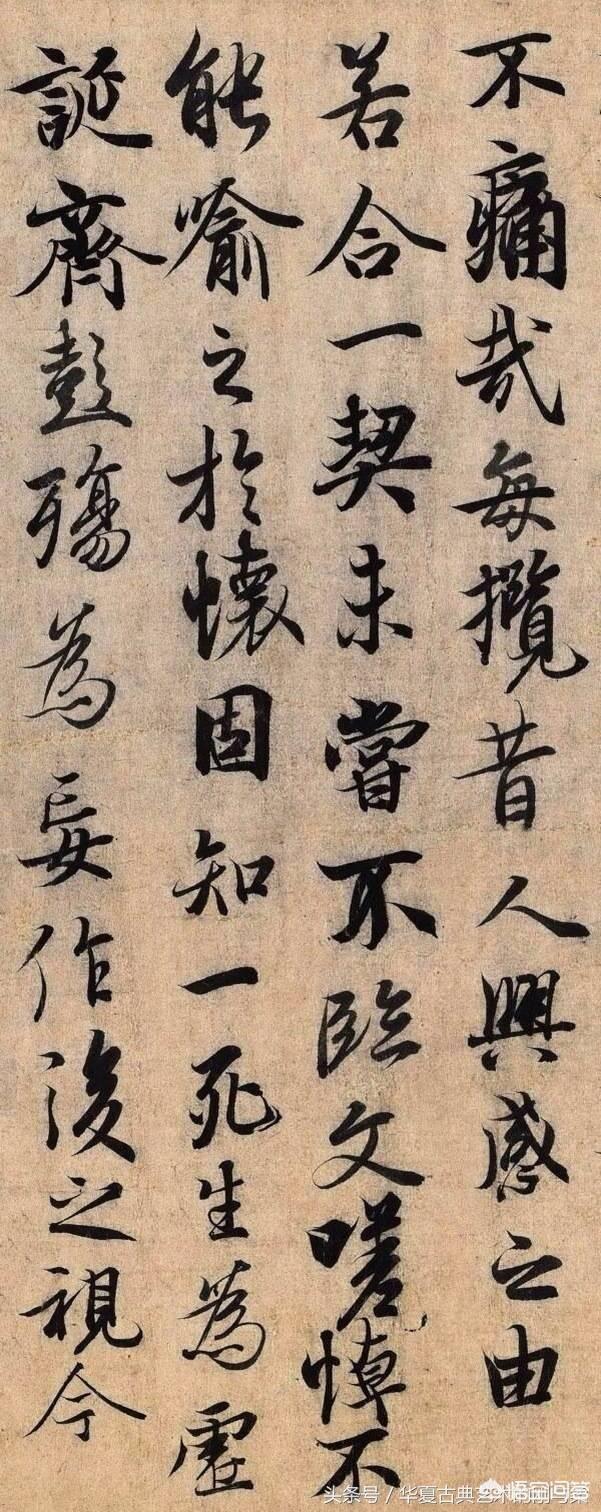 不痛哉每攬昔人興感之由
若合一契未嘗不臨文嗟悼不
能喻之於懷固知一死生為虛
誕齊彭殤為妄作後之視今
头条号／华夏古典艺术
悟空问答